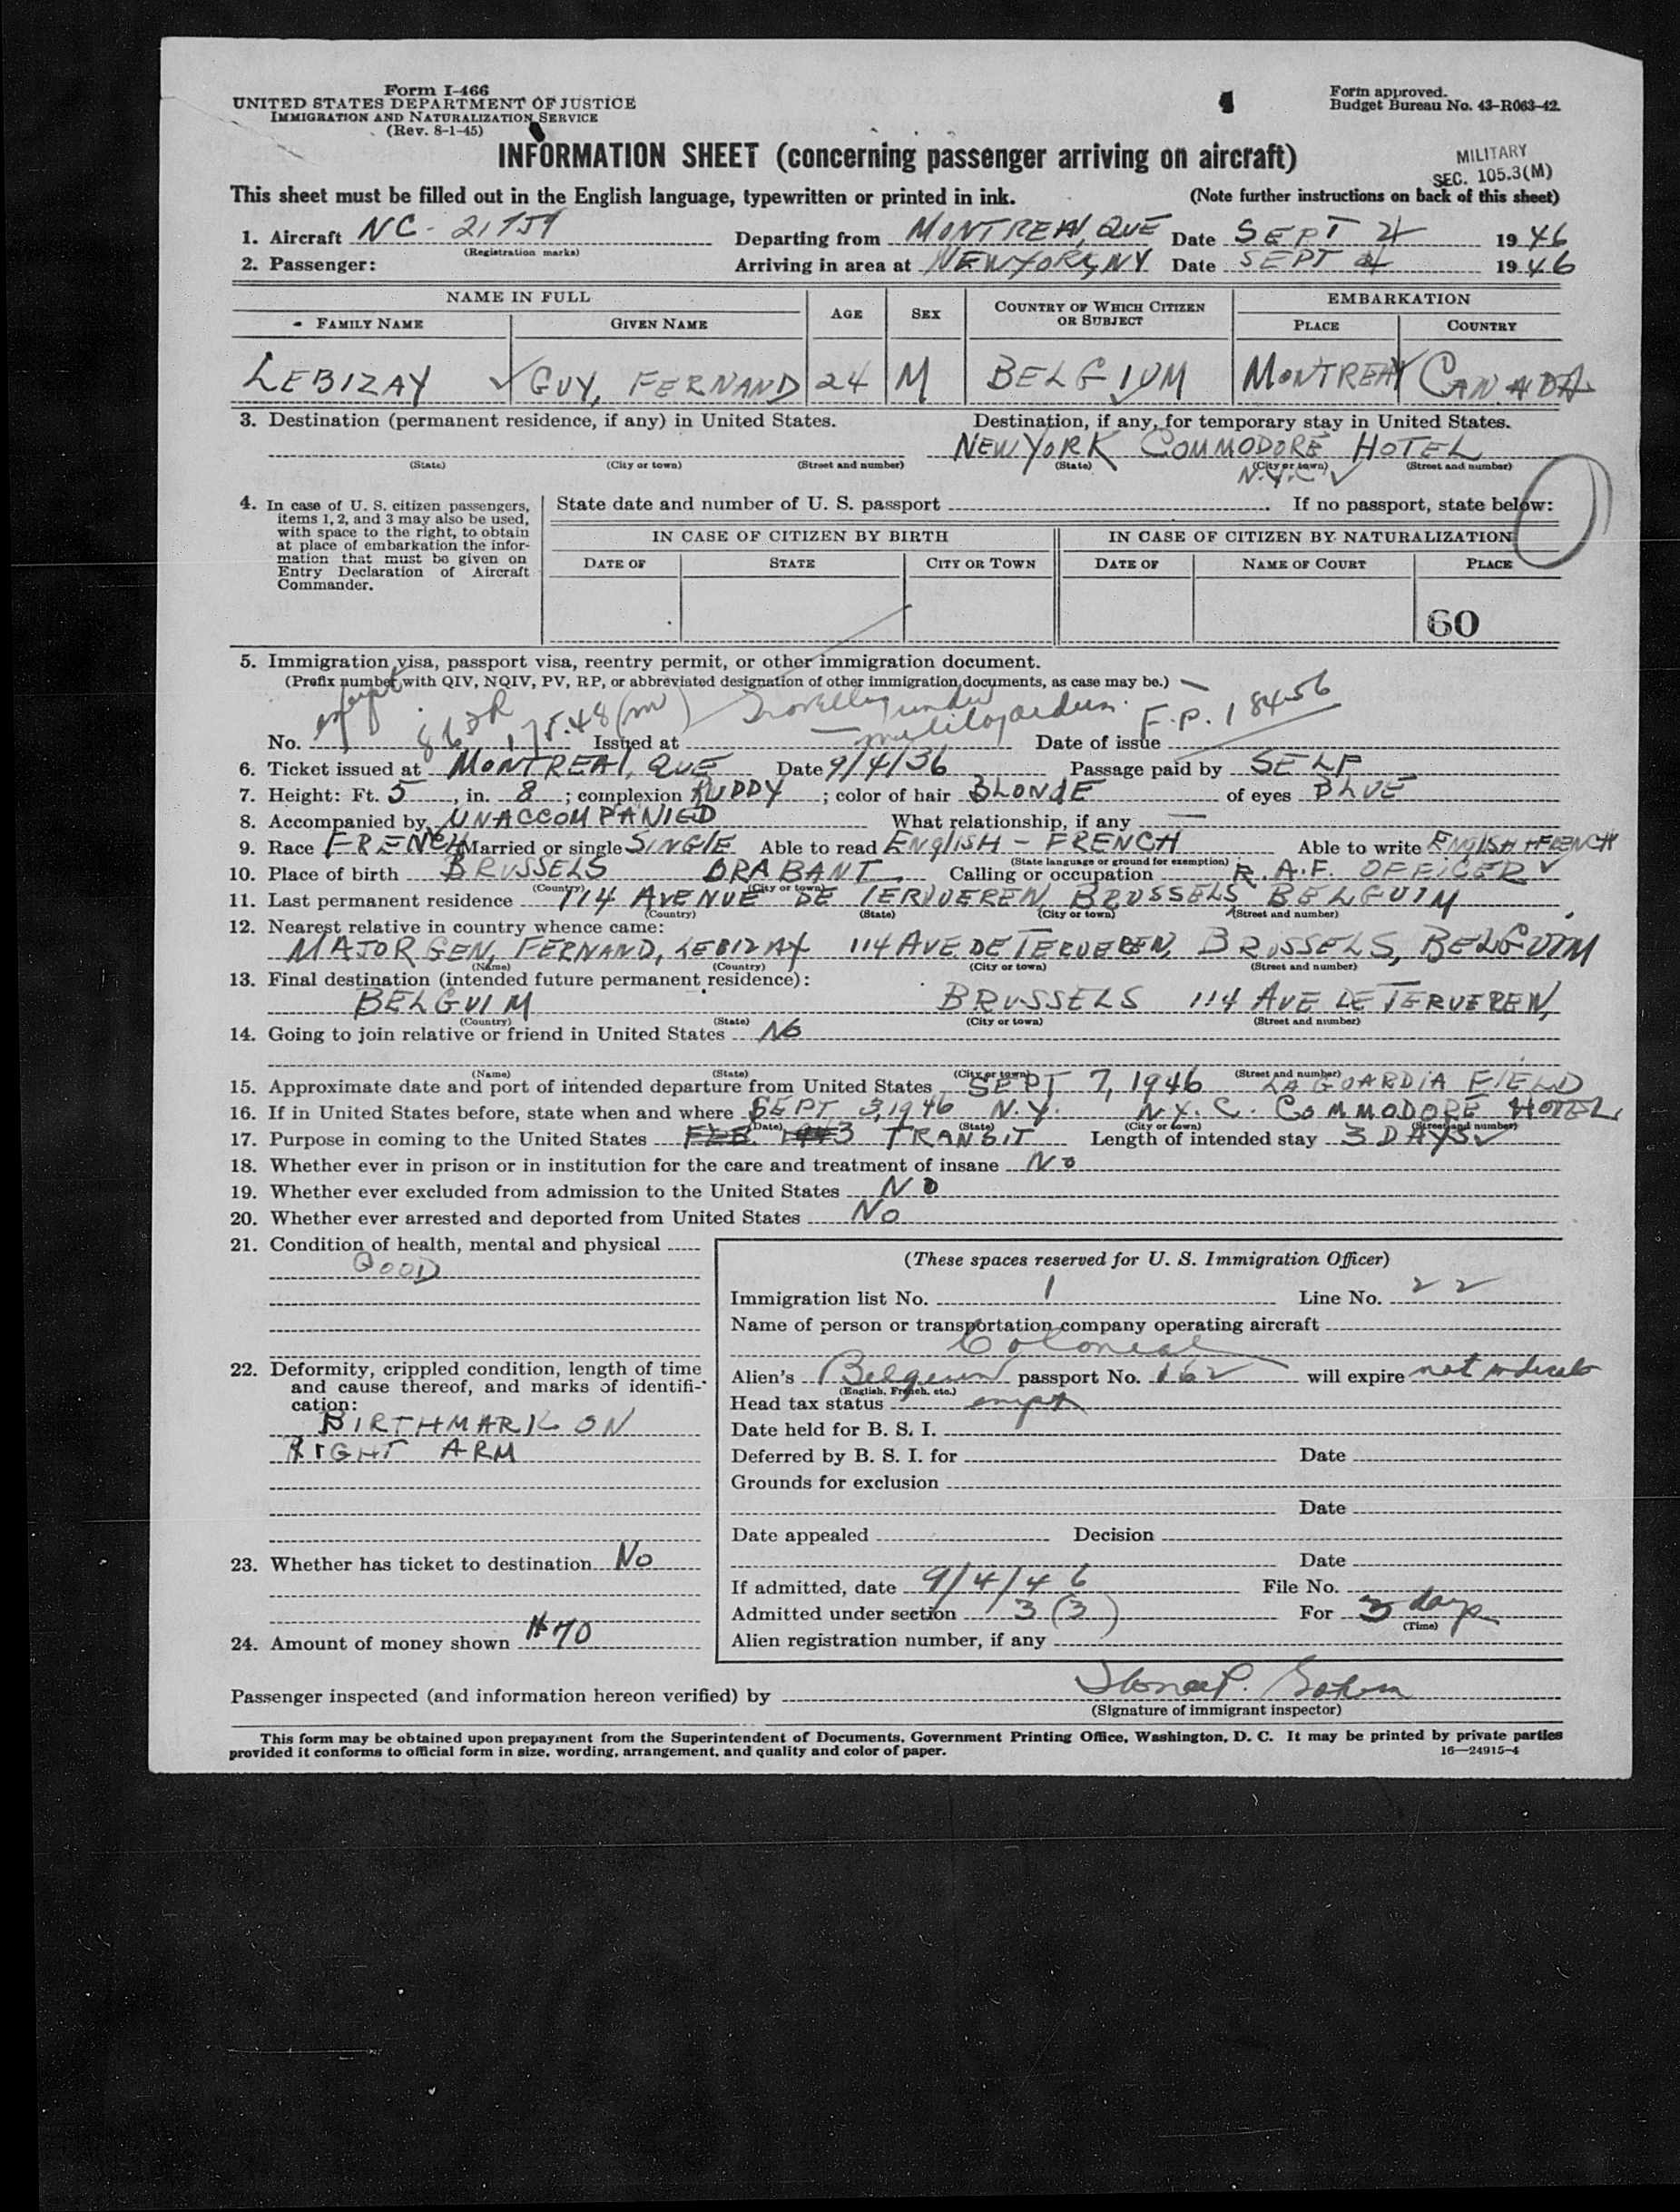 Form I-466
UNITED STATES DEPARTMENT OF JUSTICE
IMMIGRATION AND NATURALIZATION SERVICE
(Rev. 8-1-45)
Form approved.
Budget Bureau No. 43-R063-42.
INFORMATION SHEET (concerning passenger arriving on aircraft)
MILITARY
SEC. 105.3(M)
This sheet must be filled out in the English language, typewritten or printed in ink. (Note further instructions on back of this sheet)
1. Aircraft NC-21751 Departing from MONTREAL, QUE Date SEPT 4 1946
(Registration marks)
2. Passenger: Arriving in area at NEW YORK, NY Date SEPT 4 1946
NAME IN FULL AGE SEX COUNTRY OF WHICH CITIZEN OR SUBJECT EMBARKATION
FAMILY NAME GIVEN NAME PLACE COUNTRY
LEBIZAY GUY, FERNAND 24 M BELGIUM MONTREAL CANADA
3. Destination (permanent residence, if any) in United States. Destination, if any, for temporary stay in United States.
NEW YORK COMMODORE HOTEL
(State) (City or town) (Street and number) (State) (City or town) (Street and number)
N.Y.C.
4. In case of U. S. citizen passengers, items 1, 2, and 3 may also be used, with space to the right, to obtain at place of embarkation the information that must be given on Entry Declaration of Aircraft Commander.
State date and number of U. S. passport If no passport, state below:
IN CASE OF CITIZEN BY BIRTH IN CASE OF CITIZEN BY NATURALIZATION
DATE OF STATE CITY OR TOWN DATE OF NAME OF COURT PLACE
60
5. Immigration visa, passport visa, reentry permit, or other immigration document.
(Prefix number with QIV, NQIV, PV, RP, or abbreviated designation of other immigration documents, as case may be.)
exempt 175.48 (m) Travelling under F.P. 18456
No. Issued at Date of issue
6. Ticket issued at MONTREAL, QUE Date 9/4/36 Passage paid by SELF
7. Height: Ft. 5, in. 8; complexion RUDDY; color of hair BLONDE of eyes BLUE
8. Accompanied by UNACCOMPANIED What relationship, if any —
9. Race FRENCH Married or single SINGLE Able to read ENGLISH - FRENCH Able to write ENGLISH + FRENCH
(State language or ground for exemption)
10. Place of birth BRUSSELS BRABANT Calling or occupation R.A.F. OFFICER
(Country) (City or town)
11. Last permanent residence 114 AVENUE DE TERVUEREN, BRUSSELS BELGUIM
(Country) (State) (City or town) (Street and number)
12. Nearest relative in country whence came:
MAJOR GEN, FERNAND, LEBIZAY 114 AVE DE TERVUEREN, BRUSSELS, BELGUIM
(Name) (Country) (City or town) (Street and number)
13. Final destination (intended future permanent residence):
BELGUIM BRUSSELS 114 AVE DE TERVUEREN,
(Country) (State) (City or town) (Street and number)
14. Going to join relative or friend in United States NO
(Name) (State) (City or town) (Street and number)
15. Approximate date and port of intended departure from United States SEPT 7, 1946 LAGUARDIA FIELD
16. If in United States before, state when and where SEPT 3, 1946 N.Y. N.Y.C. COMMODORE HOTEL
(Date) (State) (City or town) (Street and number)
17. Purpose in coming to the United States FEB. 1943 TRANSIT Length of intended stay 3 DAYS
18. Whether ever in prison or in institution for the care and treatment of insane NO
19. Whether ever excluded from admission to the United States NO
20. Whether ever arrested and deported from United States NO
21. Condition of health, mental and physical
GOOD
22. Deformity, crippled condition, length of time and cause thereof, and marks of identification:
BIRTHMARK ON
RIGHT ARM
23. Whether has ticket to destination NO
24. Amount of money shown $70
(These spaces reserved for U. S. Immigration Officer)
Immigration list No. 1 Line No. 22
Name of person or transportation company operating aircraft
Colonial
Alien's Belgium passport No. 162 will expire not indicate
(English, French, etc.)
Head tax status empt
Date held for B. S. I.
Deferred by B. S. I. for Date
Grounds for exclusion
Date
Date appealed Decision
Date
If admitted, date 9/4/46 File No.
Admitted under section 3(3) For 3 days
(Time)
Alien registration number, if any
Passenger inspected (and information hereon verified) by
(Signature of immigrant inspector)
This form may be obtained upon prepayment from the Superintendent of Documents, Government Printing Office, Washington, D. C. It may be printed by private parties
provided it conforms to official form in size, wording, arrangement, and quality and color of paper. 16—24915-4